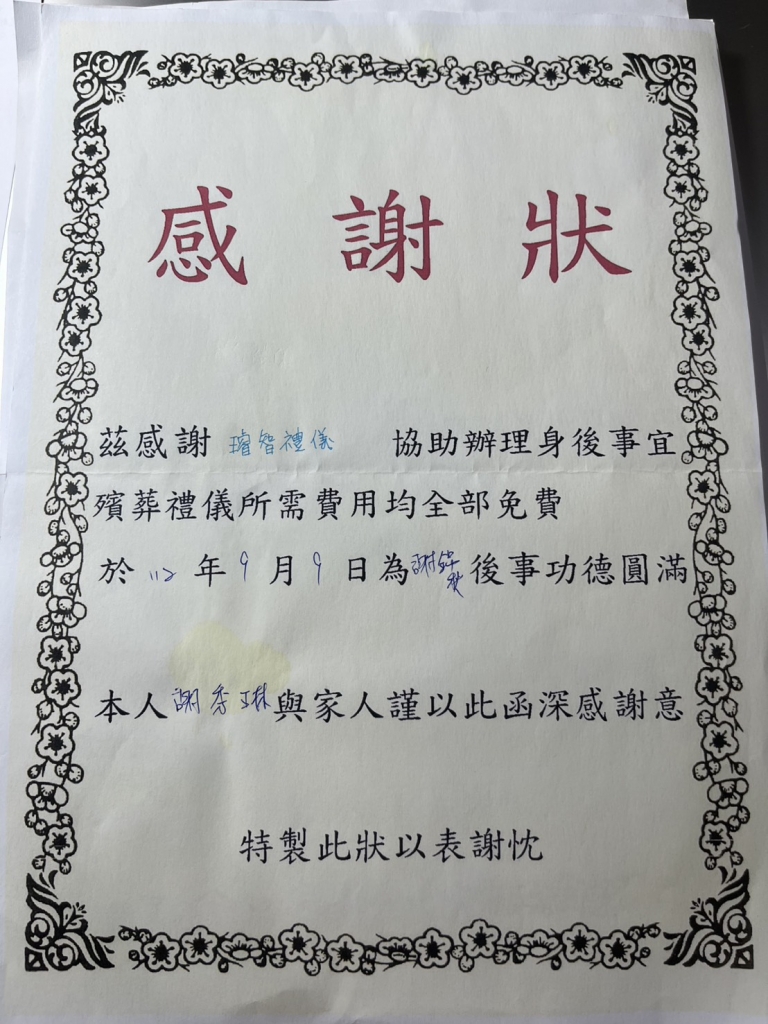 感謝狀
茲感謝 璿智禮儀 協助辦理身後事宜
殯葬禮儀所需費用均全部免費
於 112 年 9 月 9 日為謝 後事功德圓滿
本人謝秀琳與家人謹以此函深感謝意
特製此狀以表謝忱